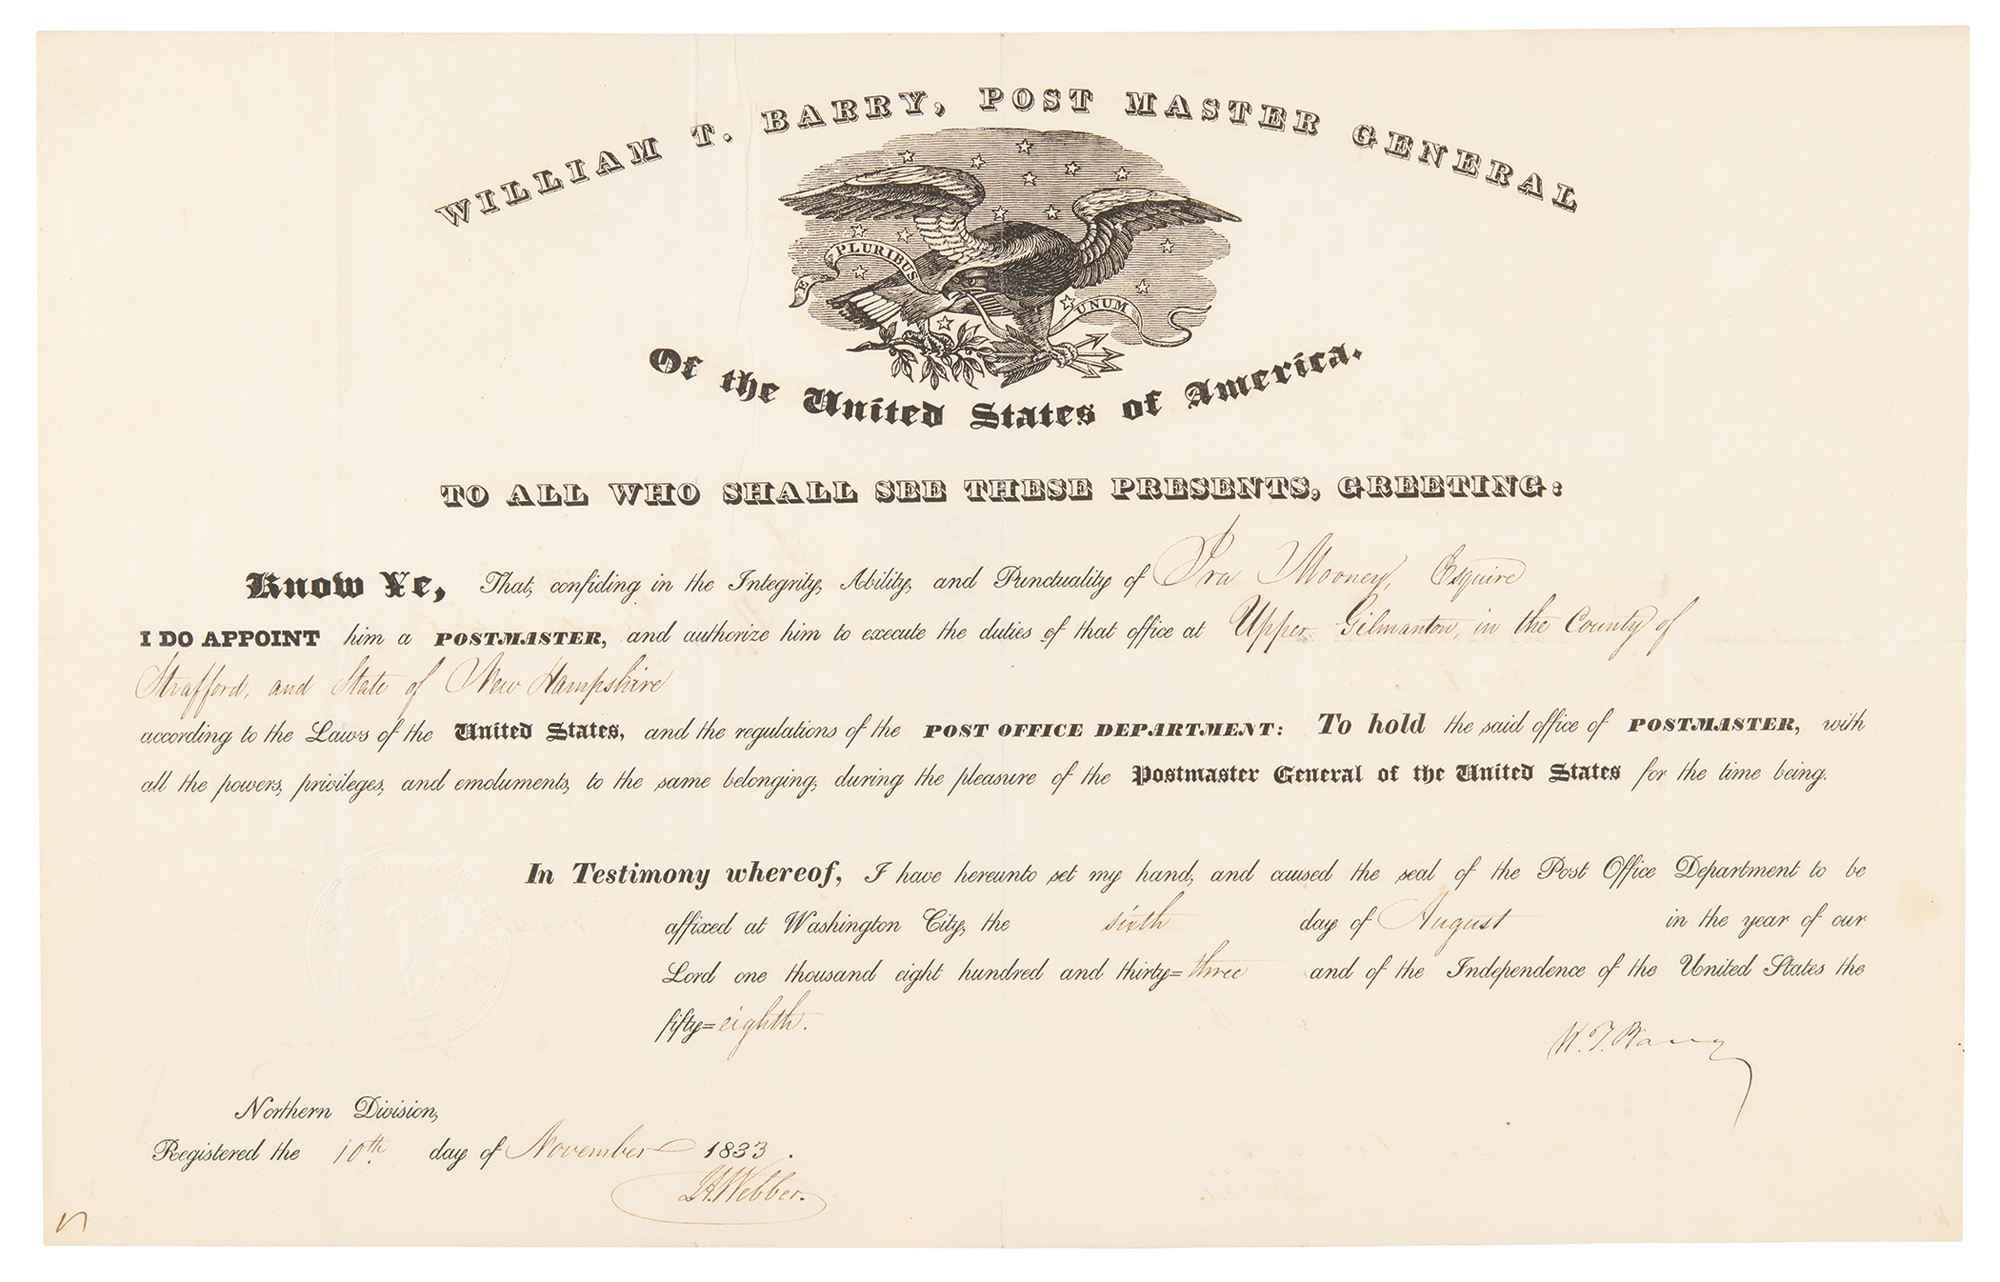 WILLIAM T. BARRY, POST MASTER GENERAL
E PLURIBUS UNUM
Of the United States of America.
TO ALL WHO SHALL SEE THESE PRESENTS, GREETING:
Know Ye, That, confiding in the Integrity, Ability, and Punctuality of Ira Mooney, Esquire
I DO APPOINT him a POSTMASTER, and authorize him to execute the duties of that office at Upper Gilmanton, in the County of
Strafford, and State of New Hampshire
according to the Laws of the United States, and the regulations of the POST OFFICE DEPARTMENT: To hold the said office of POSTMASTER, with
all the powers, privileges, and emoluments, to the same belonging, during the pleasure of the Postmaster General of the United States for the time being.
In Testimony whereof, I have hereunto set my hand, and caused the seal of the Post Office Department to be
affixed at Washington City, the sixth day of August in the year of our
Lord one thousand eight hundred and thirty=three and of the Independence of the United States the
fifty=eighth.
W. T. Barry
Northern Division,
Registered the 10th day of November 1833.
Webber.